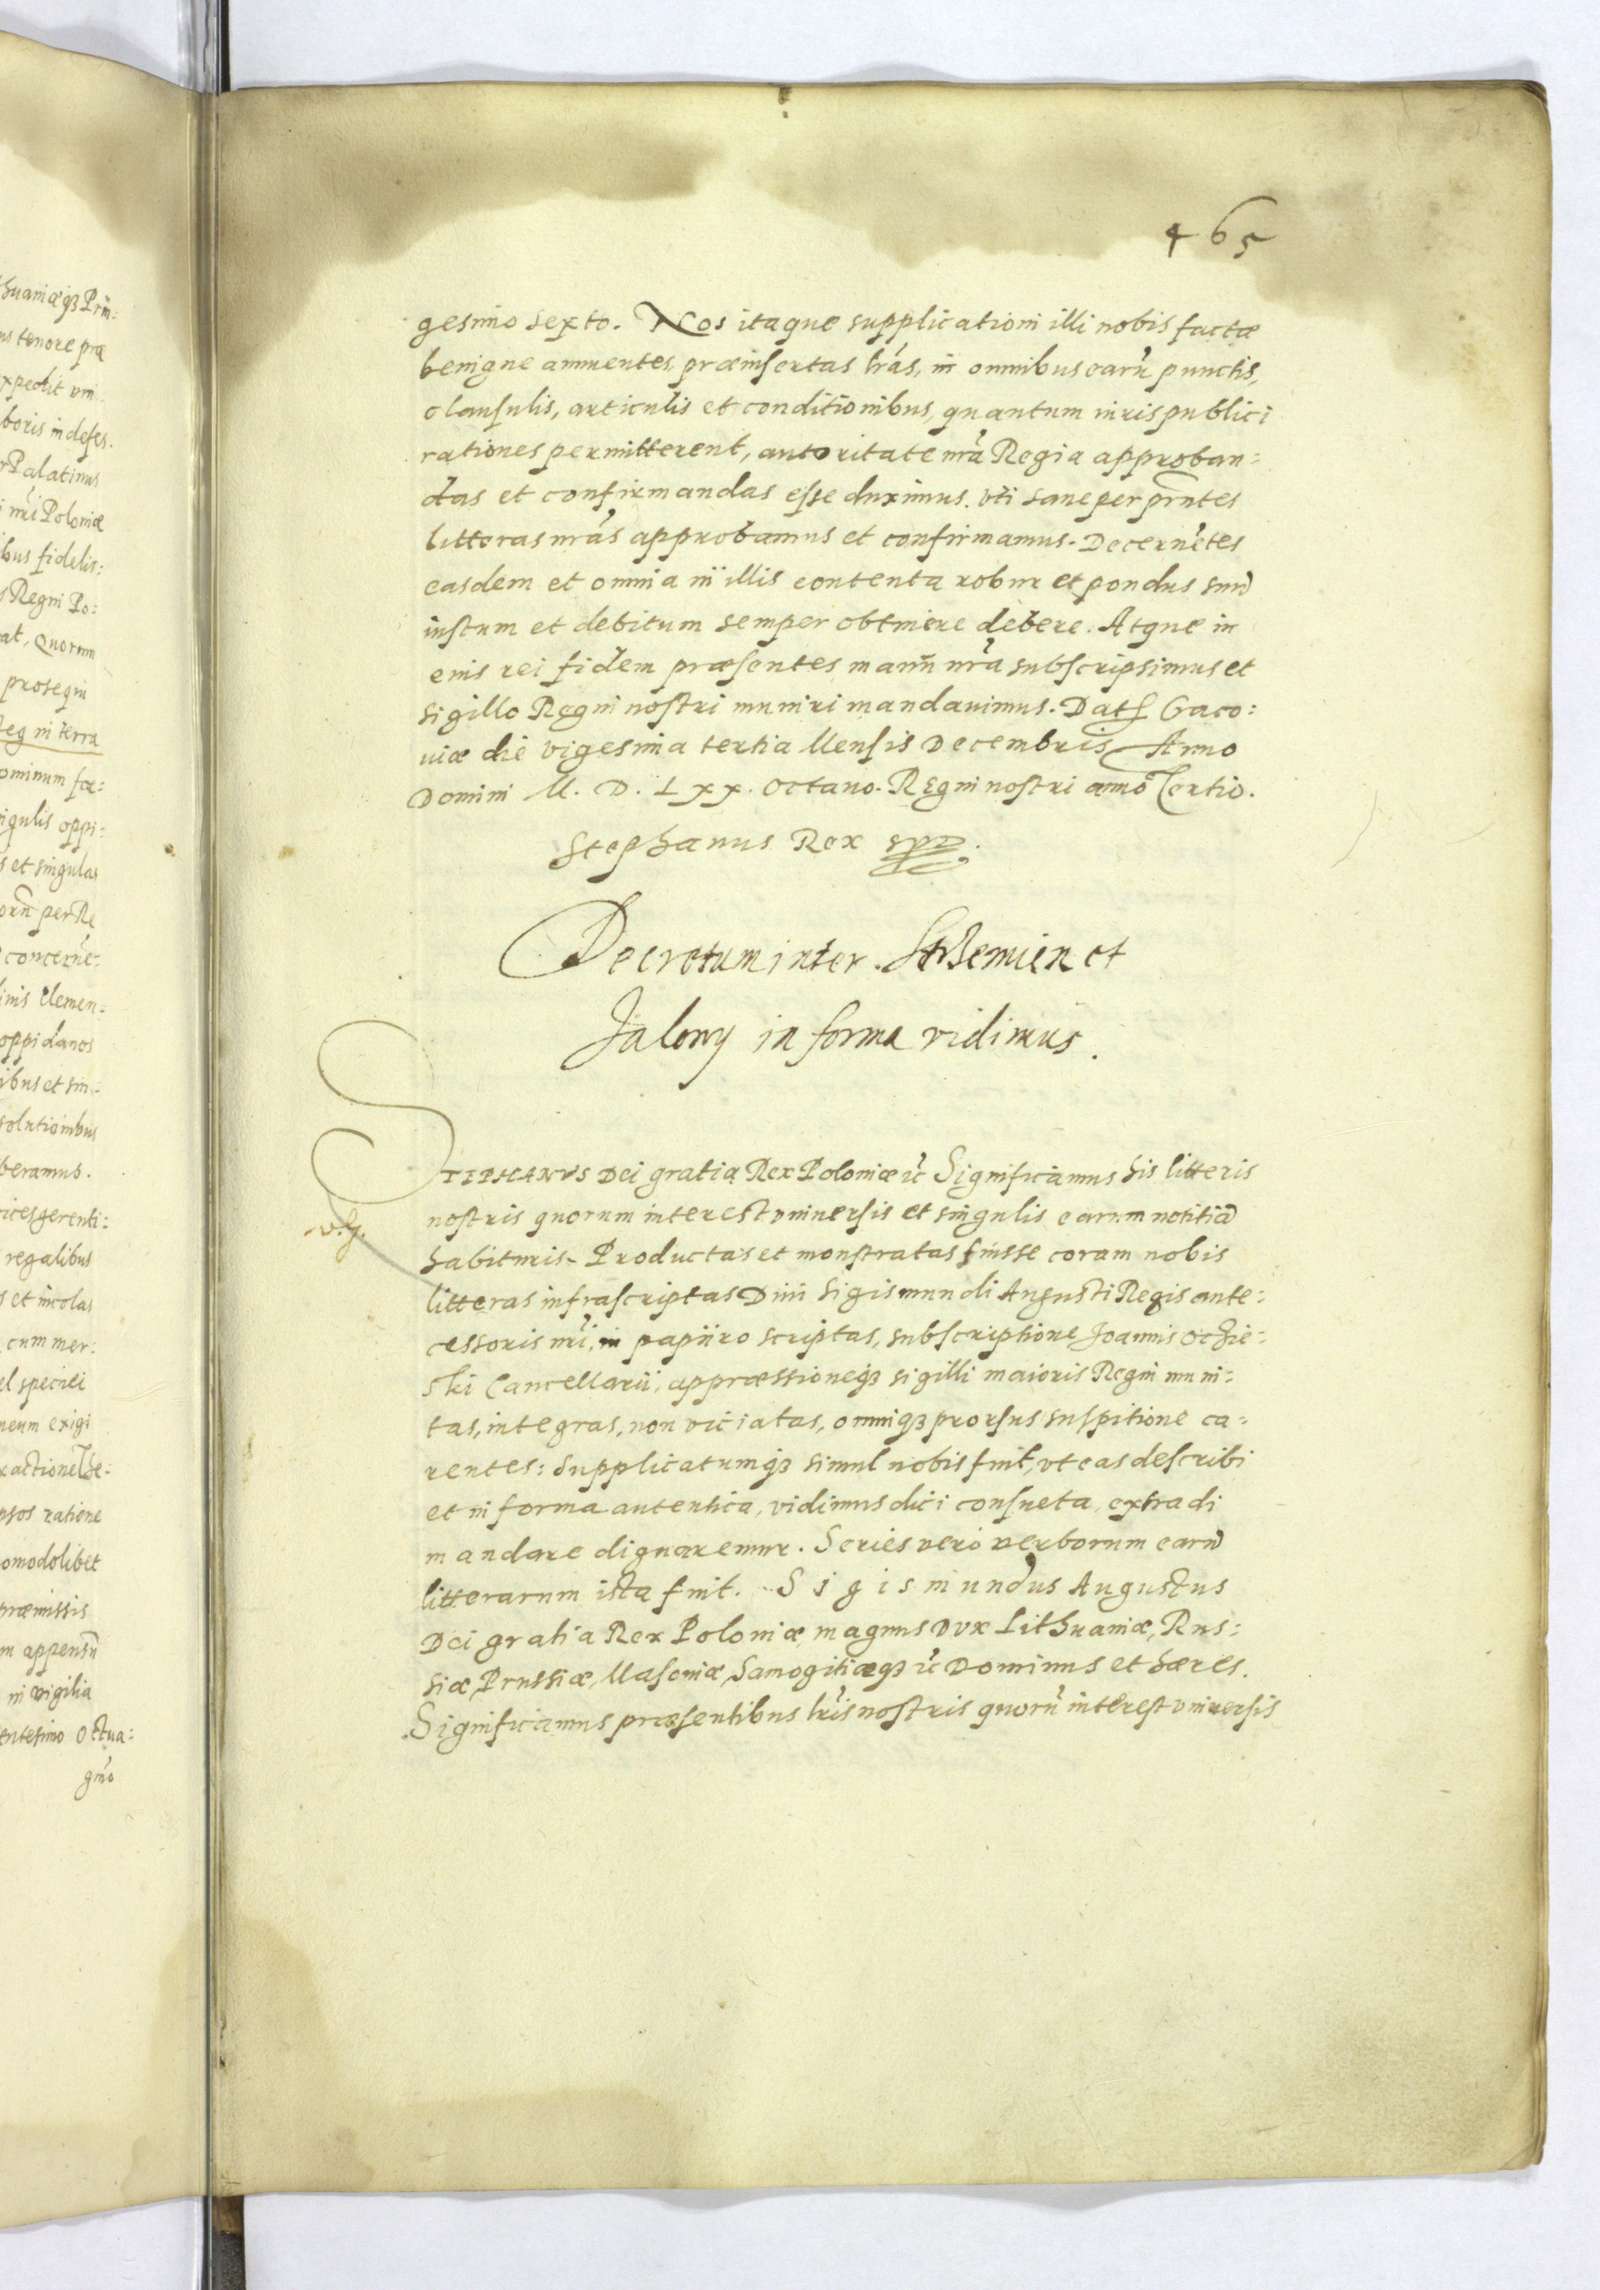 huaniæq3 Prin:
ns tenore præ
xpedit vni
boris indefes.
Palatinus
i nr̃i Poloniæ
bus fidelis:
s Regni Po:
at, Quorum
prosequi
Reg in terra
ominum for:
ingulis oppi:
s et singulas
orũ per Re
concernẽ:
inis clemen:
oppidanos
ibus et sin:
solutionibus
beramus.
icesgerenti:
regalibus
s et incolas
cum mer:
el speciei
neum exigi
xactione The:
psos ratione
omodolibet
præmissis
m appensũ
in vigilia
entesimo Octua:
gmo
465
gesimo sexto. Nos itaque supplicationi illi nobis factæ
benigne annuentes, præinsertas lr̃as, in omnibus earũ punctis,
clausulis, articulis et conditionibus, quantum iuris publici
rationes permitterent, autoritate nr̃a Regia approban:
das et confirmandas esse duximus. vti sane per pr̃ntes
litteras nr̃as approbamus et confirmamus. Decernẽtes
easdem et omnia in illis contenta robur et pondus suũ
iustum et debitum semper obtinere debere. Atque in
eius rei fidem præsentes manũ nr̃a subscripsimus et
sigillo Regni nostri muniri mandauimus. Dat Craco:
uiæ die vigesima tertia Mensis Decembris Anno
Domini M. D. Lxx. octauo. Regni nostri anno Tertio.
Stephanus Rex
Decretum inter et
Jalowy in forma vidimus.
STEPHANVS Dei gratia Rex Poloniæ ић Significamus his litteris
nostris quorum interest vniuersis et singulis earum notitiã
habituris. Productas et monstratas fuisse coram nobis
litteras infrascriptas Diui Sigismundi Augusti Regis ante:
cessoris nr̃i, in papiro scriptas, subscriptione Joannis Oczie:
ski Cancellarii, appræssioneq3 sigilli maioris Regni muni:
tas, integras, non viciatas, omniq3 prorsus suspitione ca:
rentes: Supplicatumq3 simul nobis fuit, vt eas describi
et in forma autentica, vidimus dici consueta, extradi
mandare dignaremur. Series vero verborum earũ
litterarum ista fuit. Sigismundus Augustus
Dei gratia Rex Poloniæ, magnus Dvx Lithuaniæ, Rus:
siæ, Prussiæ, Masouiæ, Samogitiæq3 Dominus et hæres.
Significamus præsentibus lr̃is nostris quorũ interest vniuersis